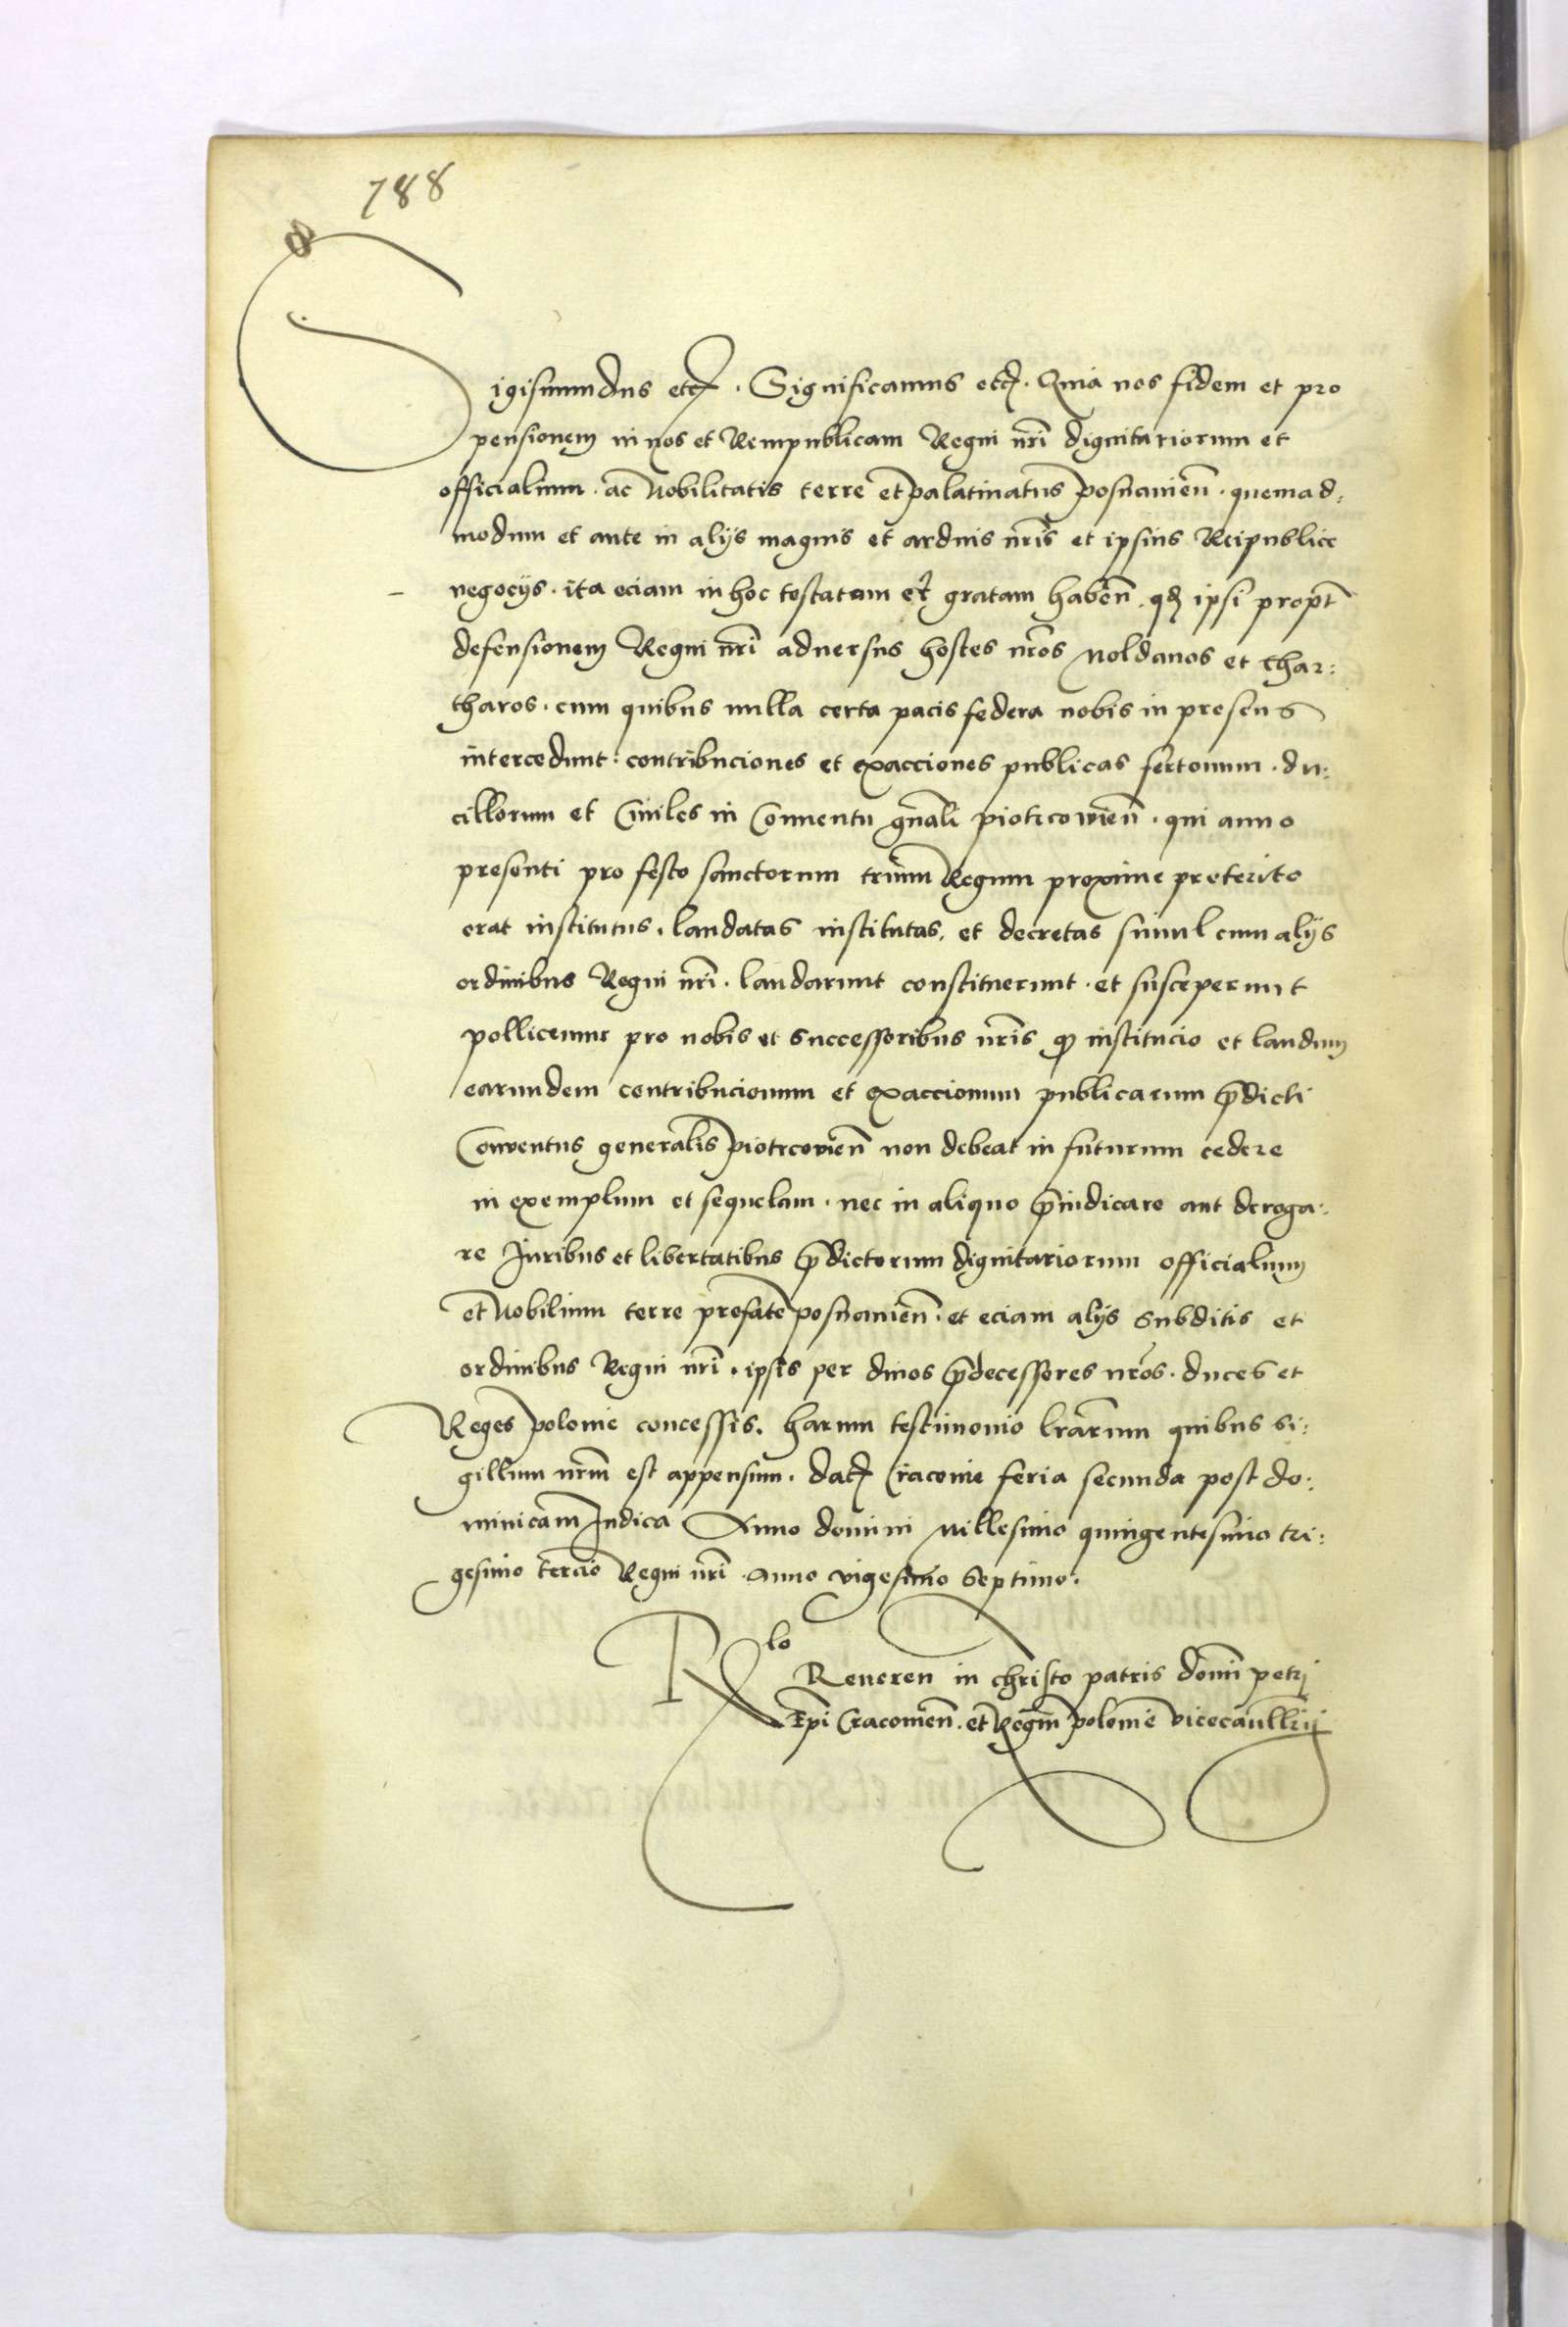 788
Sigismundus etc. Significamus etc. Quia nos fidem et pro
pensionem in nos et Rempublicam Regni nr̄i dignitariorum et
officialium . ac Nobilitatis terre et palatinatus posnanien̄ . quemad:
modum et ante in alijs magnis et arduis nr̄is et ipsius Reipublice
negocijs . ita eciam in hoc testatam et gratam haben̄ . qd ipsi propt̄
defensionem Regni nr̄i adversus hostes nr̄os Moldavos et thar:
tharos . cum quibus nulla certa pacis federa nobis in presens
intercedunt : contribuciones et exacciones publicas fertonum . du:
cillorum et Civiles in Conventu gn̄ali piotrcovien̄ . qui anno
presenti pro festo sanctorum trium Regum proxime preterito
erat institutus . laudatas institutas . et decretas simul cum alijs
ordinibus Regni nr̄i . laudarunt constituerunt . et susceperunt
pollicemur pro nobis et successoribus nr̄is qd institucio et laudum
earundem contribucionum et exaccionum publicarum p̄dicti
Conventus generalis piotrcovien̄ non debeat in futurum cedere
in exemplum et sequelam . nec in aliquo p̄iudicare aut deroga:
re Iuribus et libertatibus p̄dictorum dignitariorum officialium
et Nobilium terre prefate posnanien̄ . et eciam alijs subditis et
ordinibus Regni nr̄i . ipsis per divos p̄decessores nr̄os . duces et
Reges polonie concessis . harum testimonio lr̄arum quibus si:
gillum nr̄m est appensum . dat Cracovie feria secunda post do:
minicam Iudica Anno domini Millesimo quingentesimo tri:
gesimo tercio Regni nr̄i . anno vigesimo septimo .
Rlo
Reveren in christo patris domi petri
Ep̄i Cracovien̄ . et Regni polonie vicecancellrij